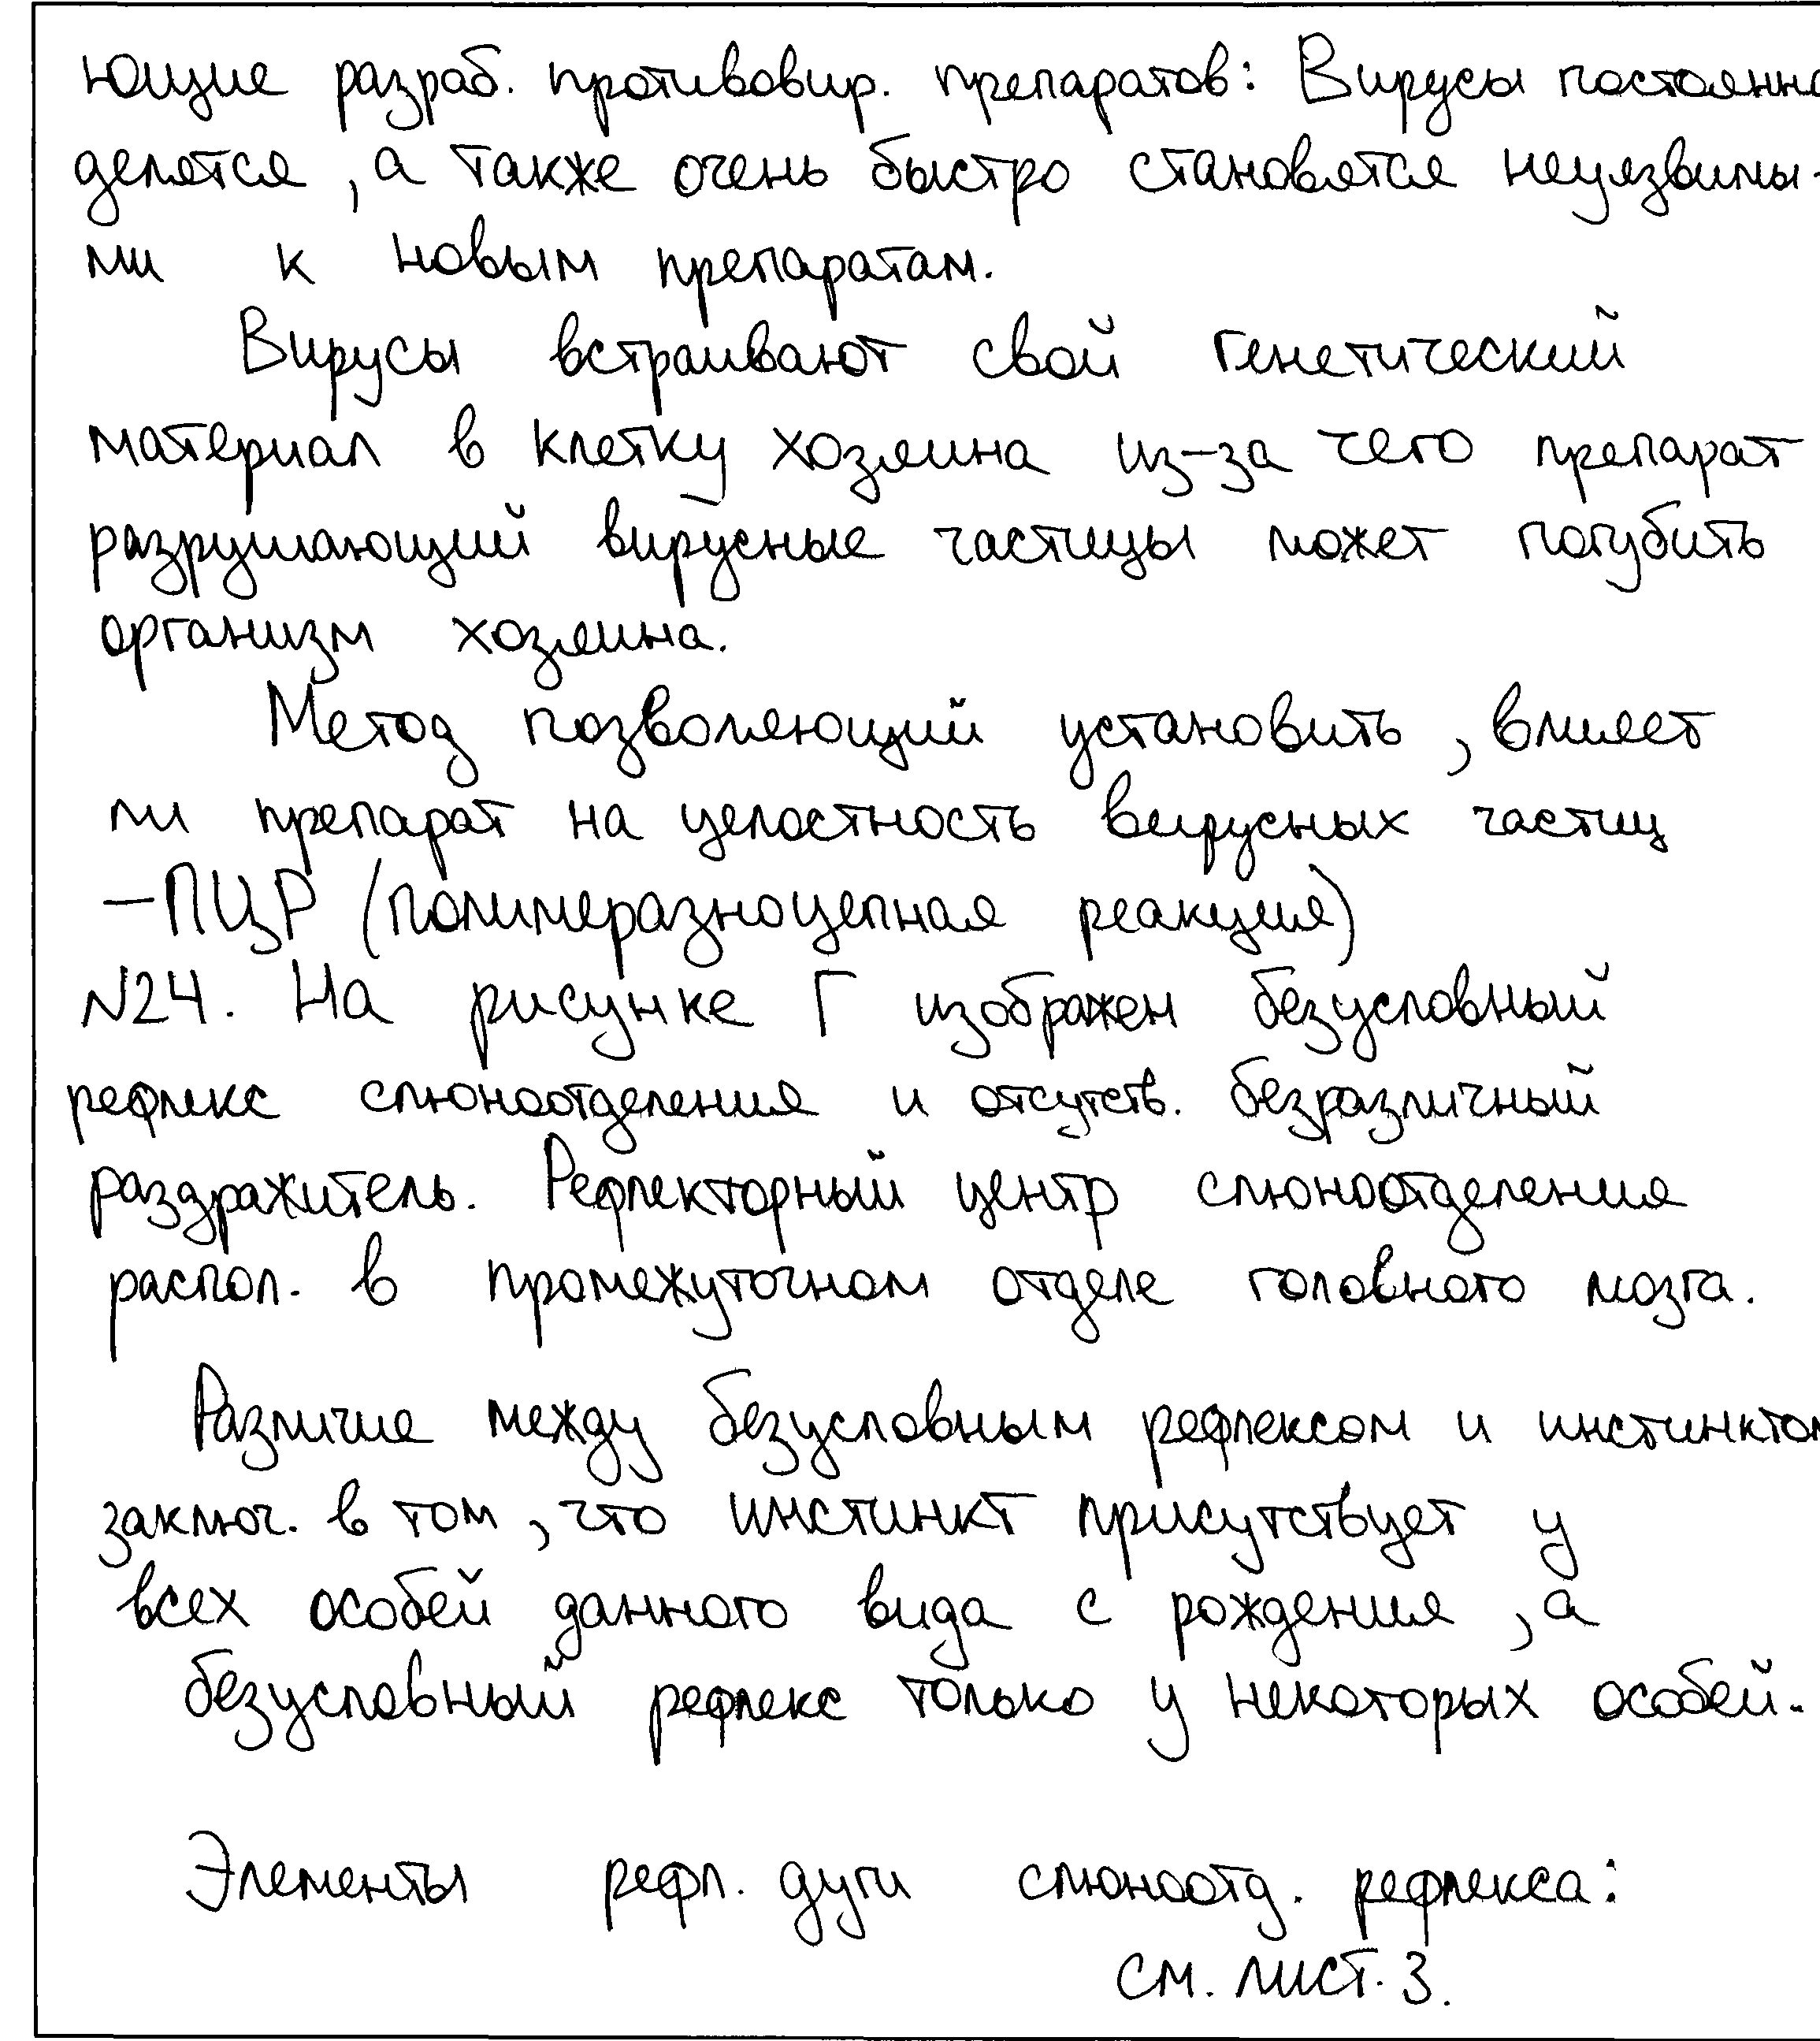 ющие разраб. противовир. препаратов: Вирусы постоянно
делятся, а также очень быстро становятся неуязвимы-
ми к новым препаратам.
Вирусы встраивают свой генетический
материал в клетку хозяина из-за чего препарат
разрушающий вирусные частицы может погубить
организм хозяина.
Метод позволяющий установить, влияет
ли препарат на целостность вирусных частиц
-ПЦР (полимеразноцепная реакция)
№24. На рисунке Г изображен безусловный
рефлекс слюноотделения и отсутств. безразличный
раздражитель. Рефлекторный центр слюноотделения
распол. в промежуточном отделе головного мозга.
Различие между безусловным рефлексом и инстинктом
заключ. в том, что инстинкт присутствует у
всех особей данного вида с рождения, а
безусловный рефлекс только у некоторых особей.
Элементы рефл. дуги слюноотд. рефлекса:
см. лист. 3.